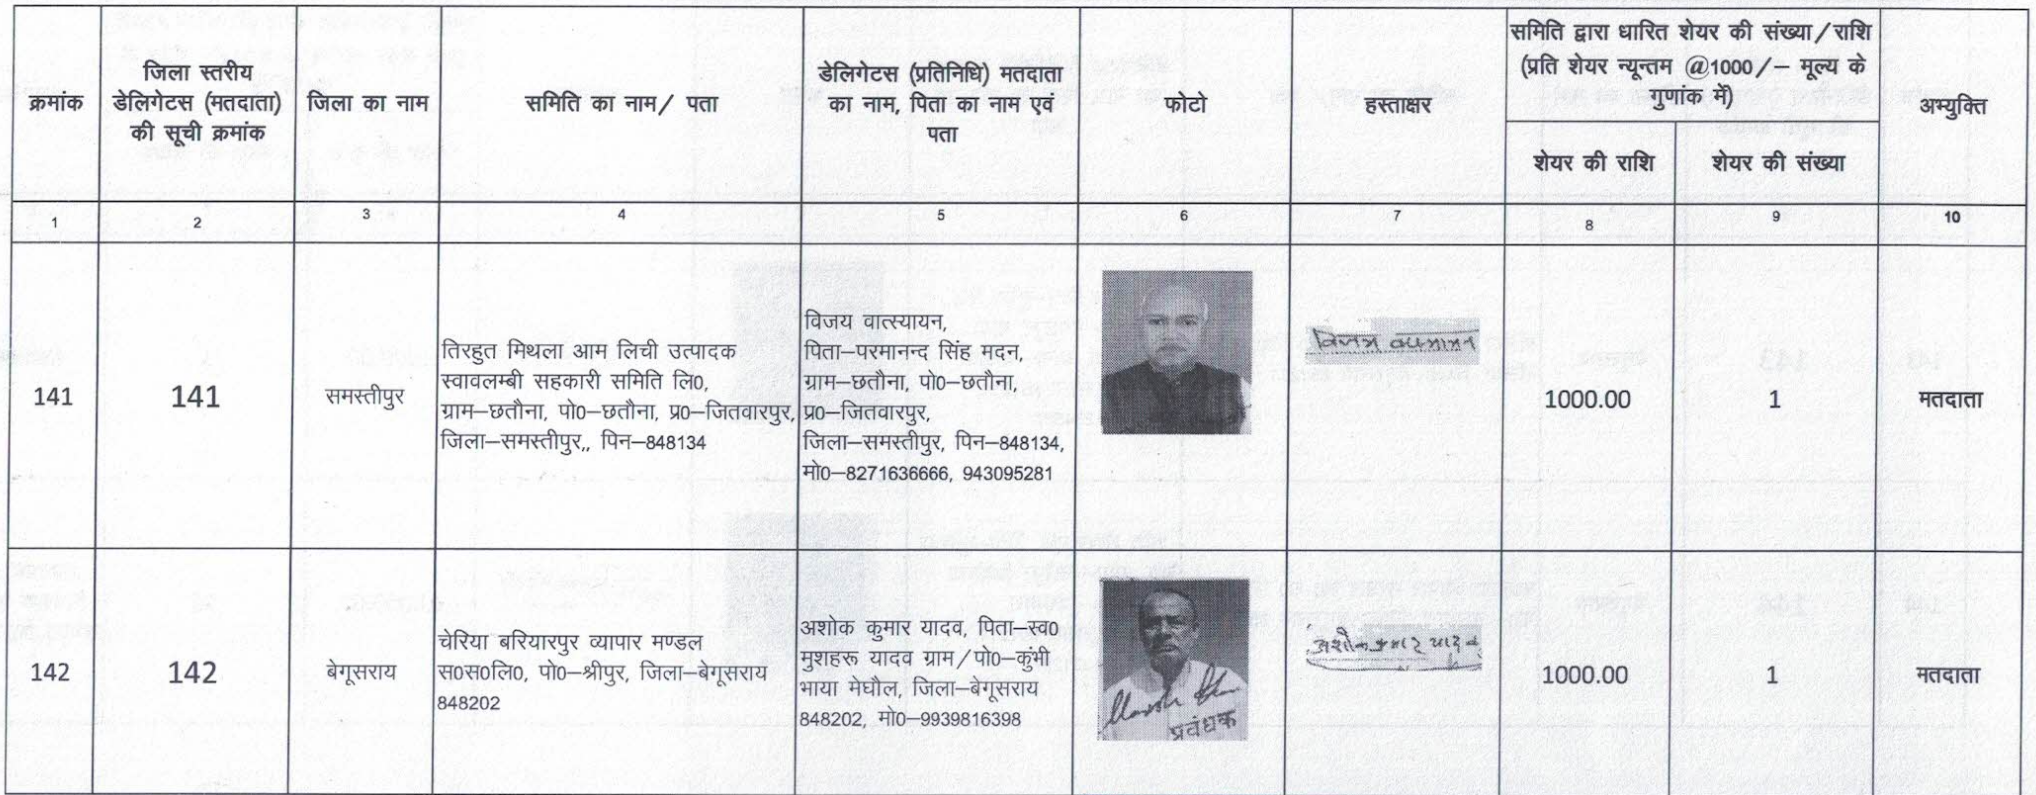 क्रमांक
जिला स्तरीय
डेलिगेटस (मतदाता)
की सूची क्रमांक
जिला का नाम
समिति का नाम/ पता
डेलिगेटस (प्रतिनिधि) मतदाता
का नाम, पिता का नाम एवं
पता
फोटो
हस्ताक्षर
समिति द्वारा धारित शेयर की संख्या/राशि
(प्रति शेयर न्यून्तम @1000/– मूल्य के
गुणांक में)
शेयर की राशि
शेयर की संख्या
अभ्युक्ति
1 2 3 4 5 6 7 8 9 10
141
141
समस्तीपुर
तिरहुत मिथला आम लिची उत्पादक
स्वावलम्बी सहकारी समिति लि0,
ग्राम–छतौना, पो0–छतौना, प्र0–जितवारपुर,
जिला–समस्तीपुर,, पिन–848134
विजय वात्स्यायन,
पिता–परमानन्द सिंह मदन,
ग्राम–छतौना, पो0–छतौना,
प्र0–जितवारपुर,
जिला–समस्तीपुर, पिन–848134,
मो0–8271636666, 943095281
1000.00
1
मतदाता
142
142
बेगूसराय
चेरिया बरियारपुर व्यापार मण्डल
स0स0लि0, पो0–श्रीपुर, जिला–बेगूसराय
848202
अशोक कुमार यादव, पिता–स्व0
मुशहरू यादव ग्राम/पो0–कुंभी
भाया मेघौल, जिला–बेगूसराय
848202, मो0–9939816398
प्रवंधक
अशोक कुमार यादव
1000.00
1
मतदाता